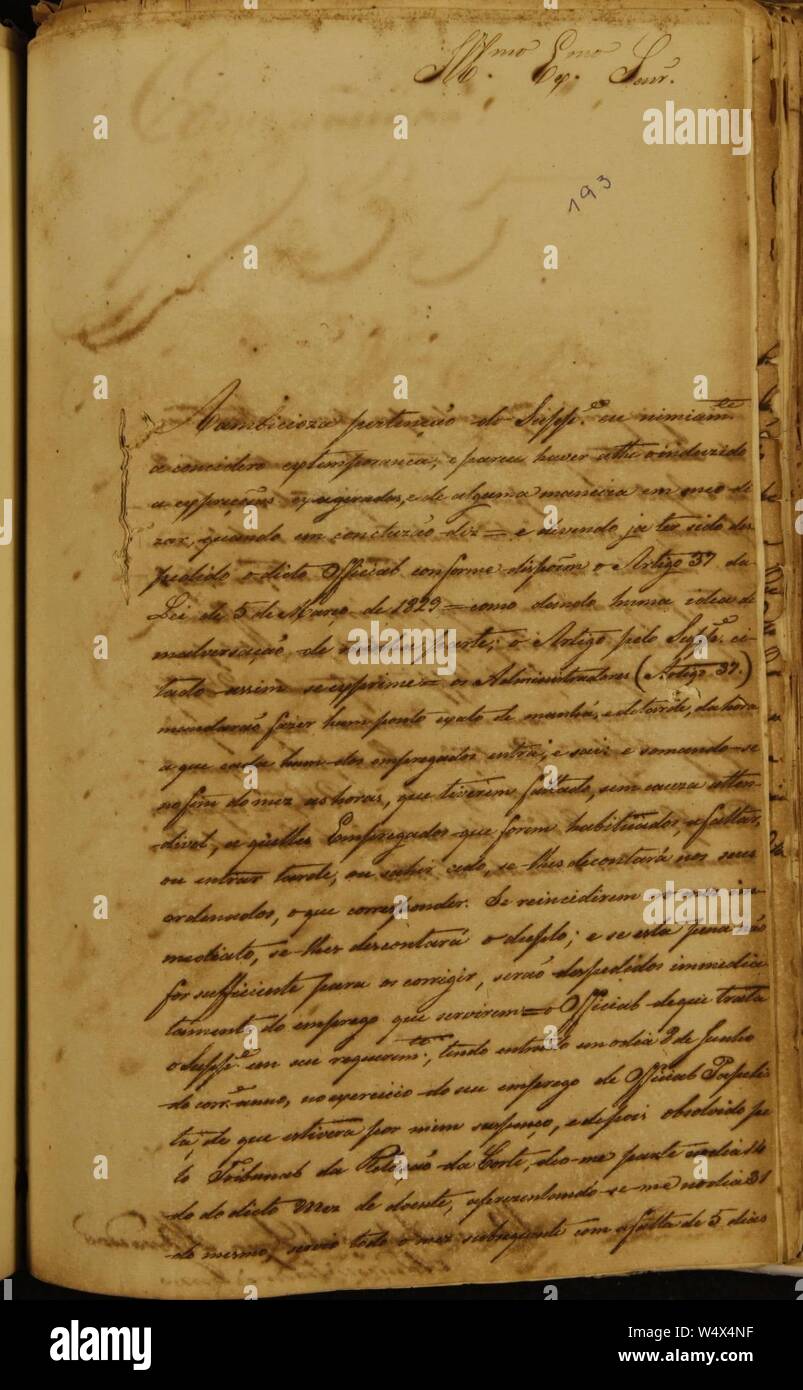 Ill.mo Ex.mo Senr.
193
A ambicioza pertenção do Supp.e eu nimiam.te
a concidero extemporanea, e pareu haver athe o induzido
a expreções exageradas, e de alguma maneira em meo de
zar, quando em concluzão diz = e divindo ja ter sido des
pedido o dicto Official conforme dispoim o Artigo 37 da
Lei de 5 de Março de 1829 = como dando huma idea de
malversação de minha parte; o Artigo pelo Supp.e ci-
tado assim se exprime = os Administradores (Artigo 37.)
mandarão fazer hum ponto exato de manhã, e de tarde, da hora
a que cada hum dos empregados entra, e sai: e somando-se
no fim do mez as horas, que tiverem faltado, sem cauza atten-
divel, a quelles Empregados que forem habituados, a faltar,
ou entrar tarde, ou sahir cedo, se lhes descontará nos seus
ordenados, o que corresponder. Se reincidirem no mez im-
mediato, se lhes descontará o duplo; e se esta pena não
for sufficiente para os corrigir, serão despedidos immedia
tament. do emprego que servirem = o Official de que trata
o Supp.e em seu requerim.to, tendo entrado um o dia 3 de Junho
do corr.e anno, no exercicio do seu emprego de Official Papelis
ta, de que estivera por mim suspenço, e depois absolvido pe
lo Tribunal da Relação da Corte, deo-me parte no dia 14
do dicto mez de doente, aprezentando-se-me no dia 31
do mesmo, servio todo o mez subsequente com a falta de 5 dias
alamy
Image ID: W4X4NF
www.alamy.com